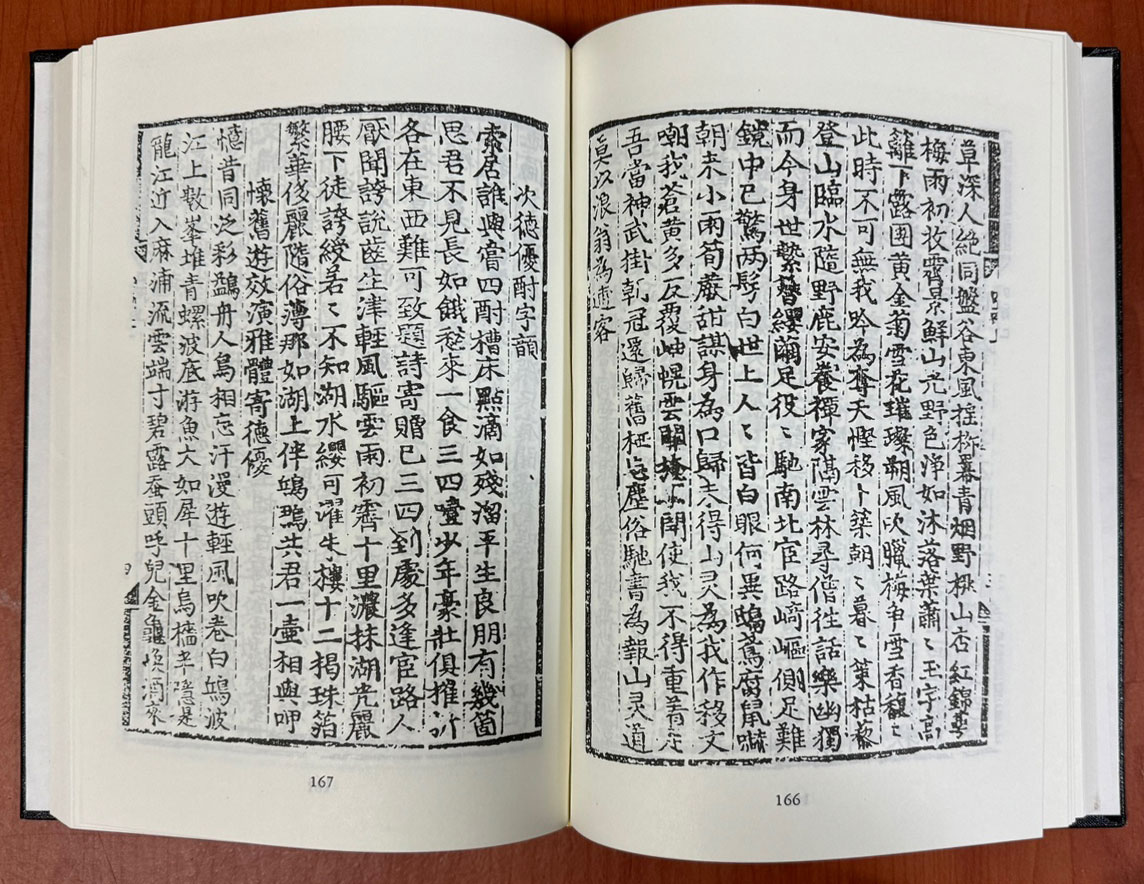 草深人絶同盤谷東風摇𣠄幕青烟野桃山杏紅錦亭
梅雨初收霽景鮮山光野色淨如沐落葉蕭〻玉宇高
籬下露團黄金菊雪花璀璨朔風吹臘梅爭雪香馥〻
此時不可無我吟為奪天慳移卜築朝〻暮〻策枯藜
登山臨水隨野鹿安養禪家隔雲林尋僧徃話樂幽獨
而今身世縶簪纓繭足役〻馳南北宦路﨑嶇側足難
鏡中已驚兩髩白世上人〻皆白眼何異鴟鳶腐䑕嚇
朝来小雨荀蕨甜謀身為口歸未得山灵為我作移文
嘲我蒼黄多反覆岫幌雲關掩不開使我不得重着足
吾當神武掛朝冠還歸舊栖忘塵俗馳書為報山灵道
莫以浪翁為逋客
166
次德優酎字韻
索居誰與嘗四酎糟床點滴如殘溜平生良朋有幾箇
思君不見長如餓愁来一食三四噎少年豪壯俱摧
各在東西難可致題詩寄贈已三四到處多逢宦路人
厭聞誇說齒生津輕風驅雲雨初霽十里濃抹湖光麗
腰下徒誇綬若〻不知湖水纓可濯朱樓十二揭珠箔
繁華侈麗隨俗薄那如湖上伴鷗鷺共君一壺相與呷
懷舊遊效演雅體寄德優
憶昔同泛彩鷁舟人鳥相忘汗漫遊輕風吹卷白鷗波
江上數峯堆青螺波底游魚大如犀十里烏檣半隱是
龍江近入麻浦流雲端寸碧露蚕頭呼兒金龜喚酒來
167